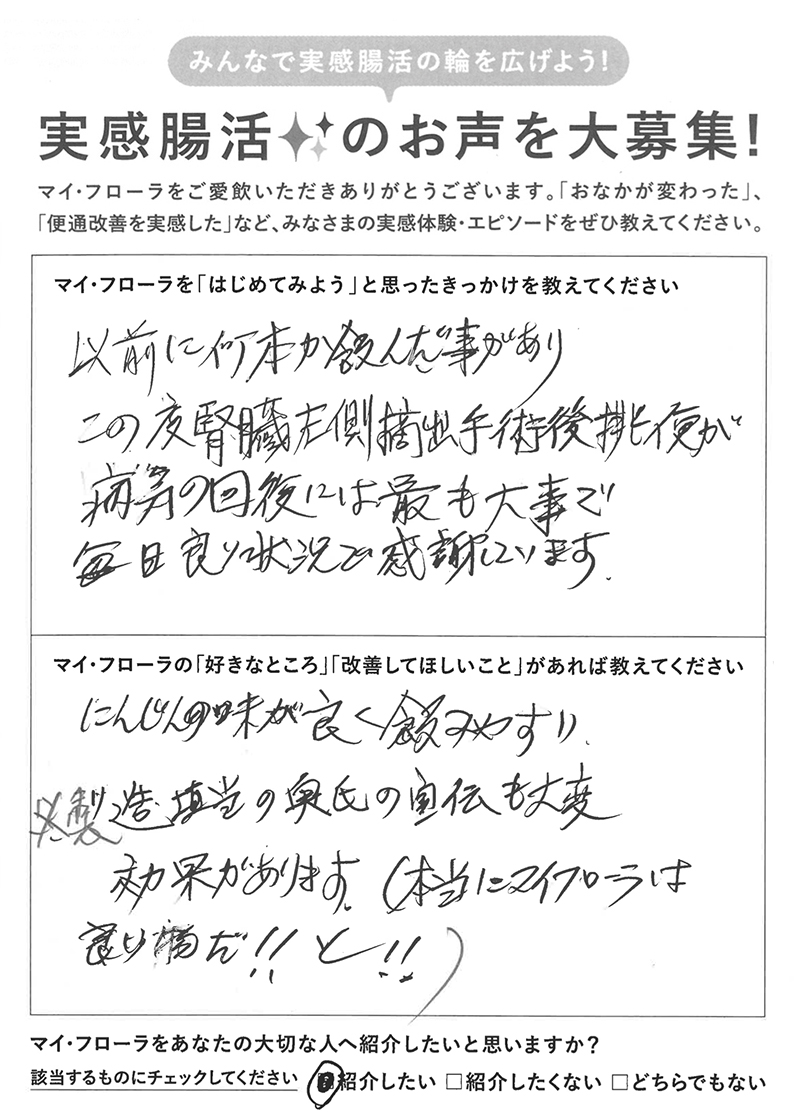 みんなで実感腸活の輪を広げよう!
実感腸活のお声を大募集!
マイ・フローラをご愛飲いただきありがとうございます。「おなかが変わった」、
「便通改善を実感した」など、みなさまの実感体験・エピソードをぜひ教えてください。
マイ・フローラを「はじめてみよう」と思ったきっかけを教えてください
以前に何本か飲んだ事があり
この度腎臓左側摘出手術後排便が
の回復には最も大事で
毎日良い状況で感謝しています。
マイ・フローラの「好きなところ」「改善してほしいこと」があれば教えてください
にんじんの味が良く飲みやすい、
製造担当の奥氏の宣伝も大変
効果があります。(本当にマイフローラは
良い物だ!!と!!)
マイ・フローラをあなたの大切な人へ紹介したいと思いますか?
該当するものにチェックしてください 紹介したい □紹介したくない □どちらでもない